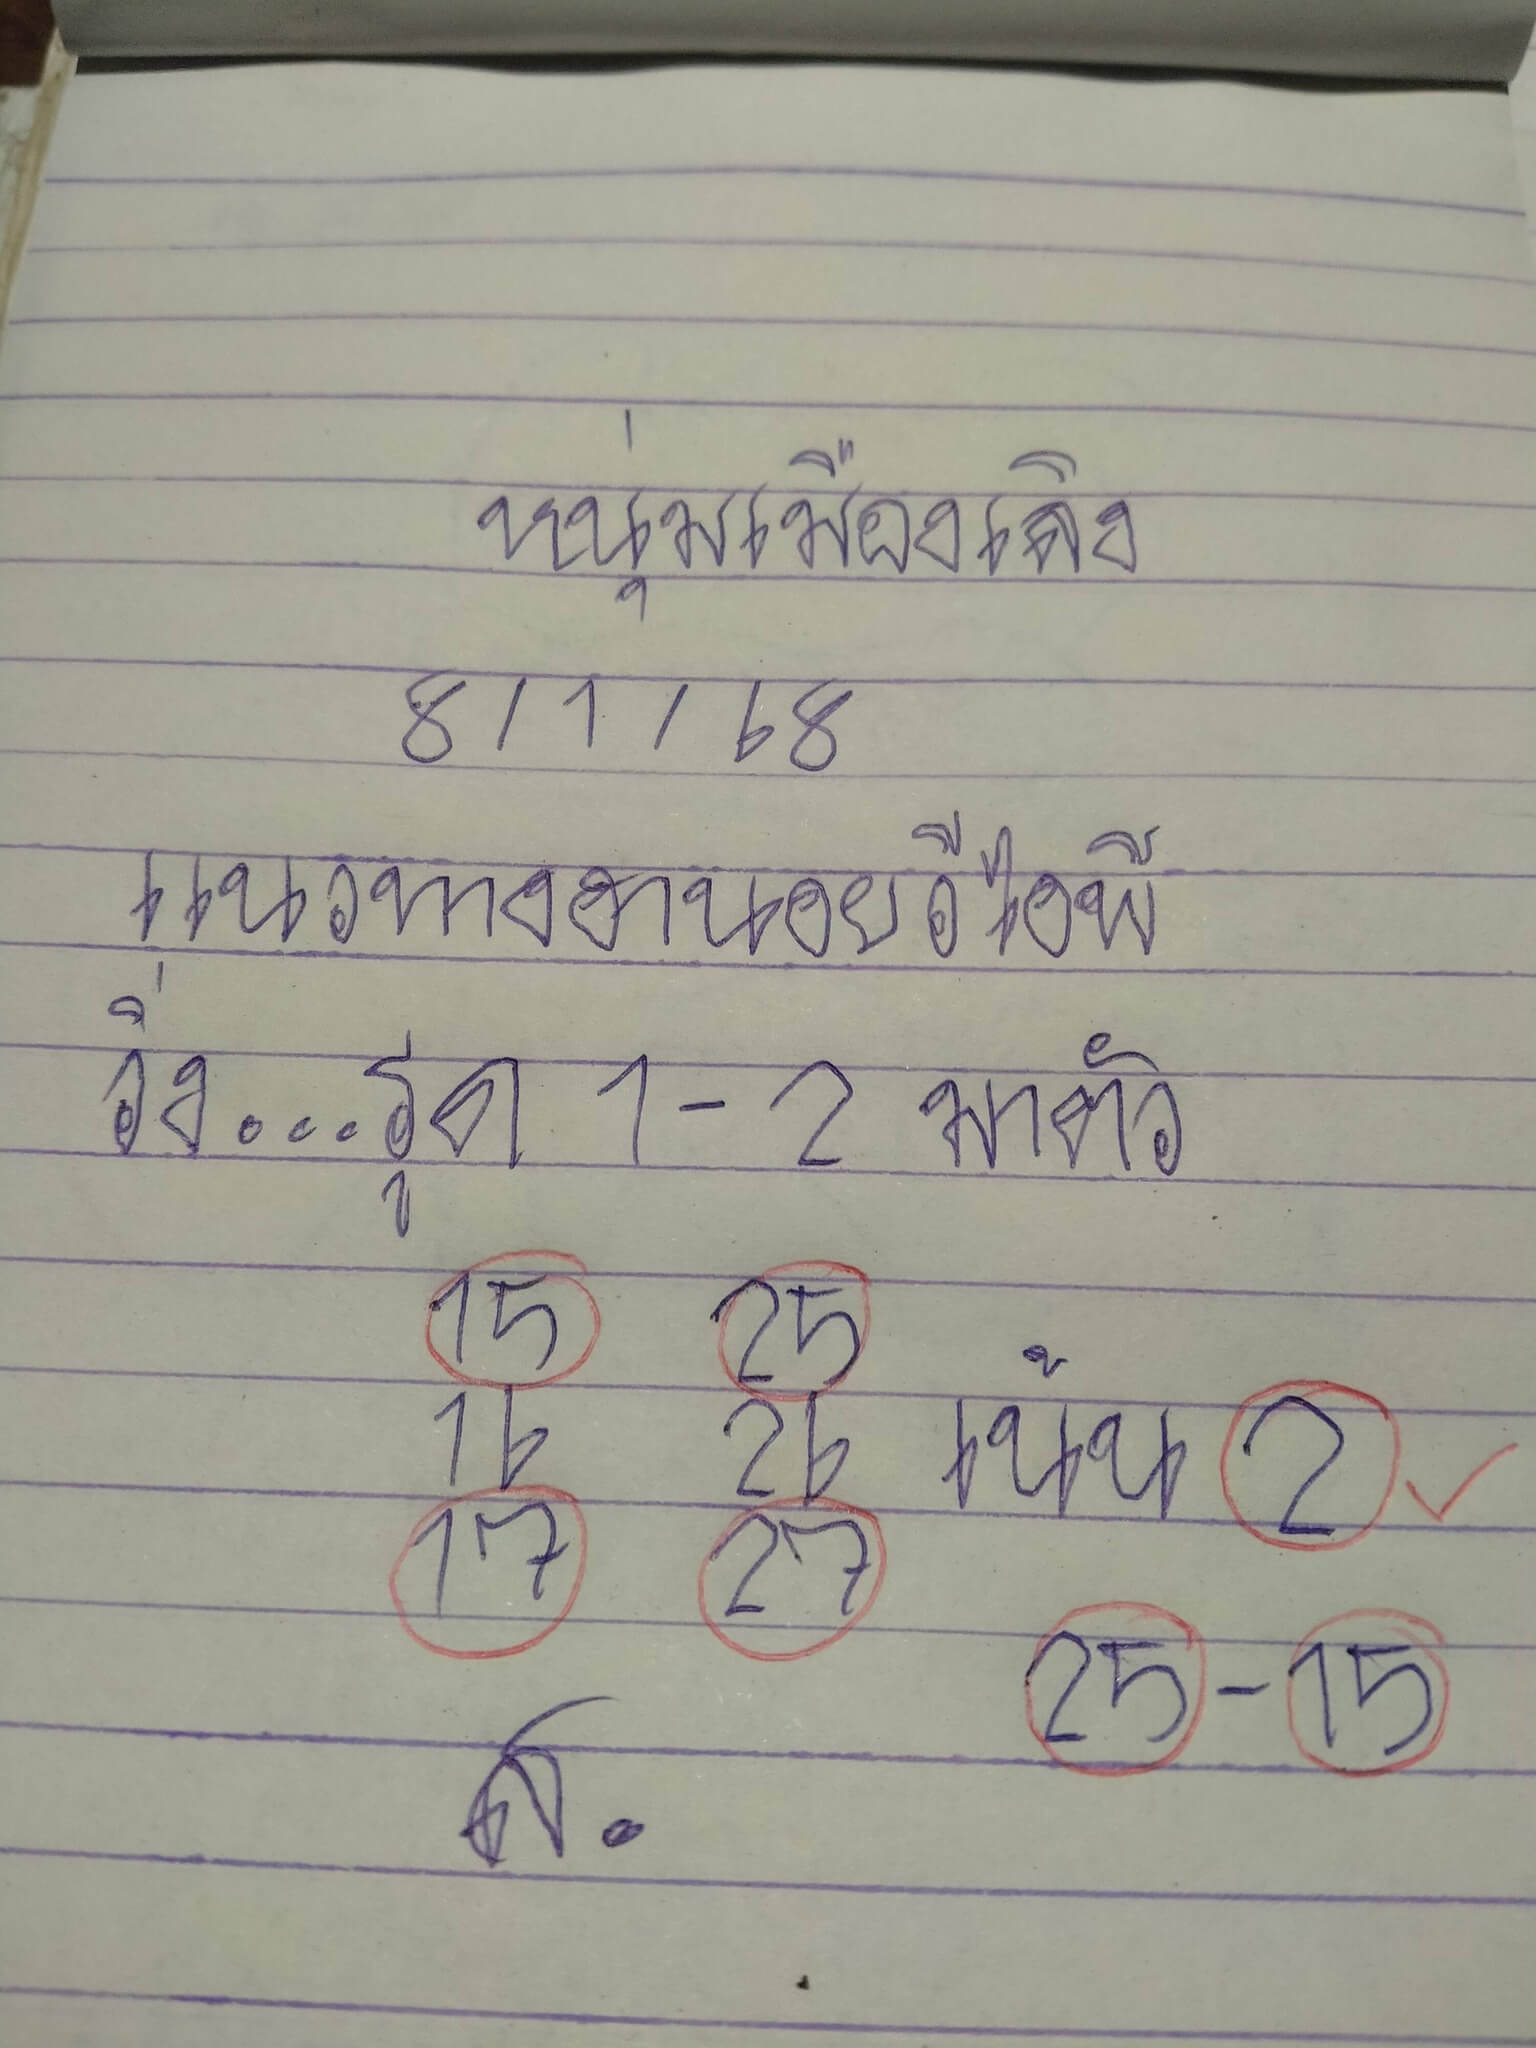 หนุ่มเมืองเลิง
8/1/68
แนวทางฮานอยวีไอพี
วิ่ง...รูด 1-2 มาตัว
15 25
16 26 เน้น 2
17 27
25-15
ส.